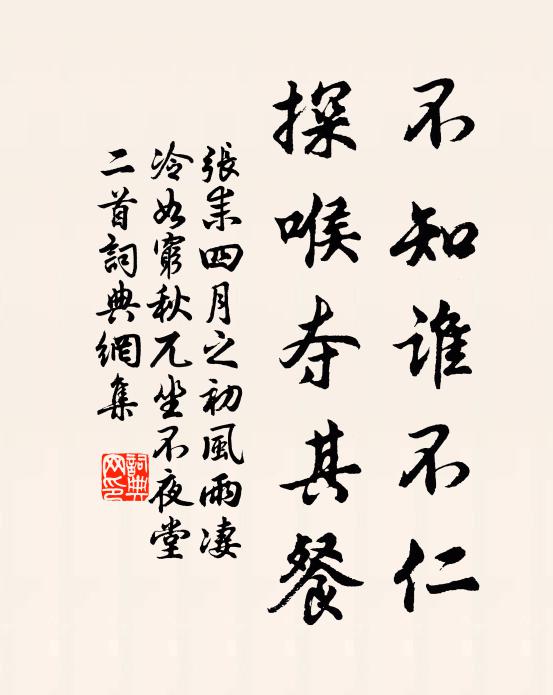 不知谁不仁
探喉夺其餐
張耒四月之初風雨凄
冷如窮秋兀坐不夜堂
二首詞典網集
詞典网印